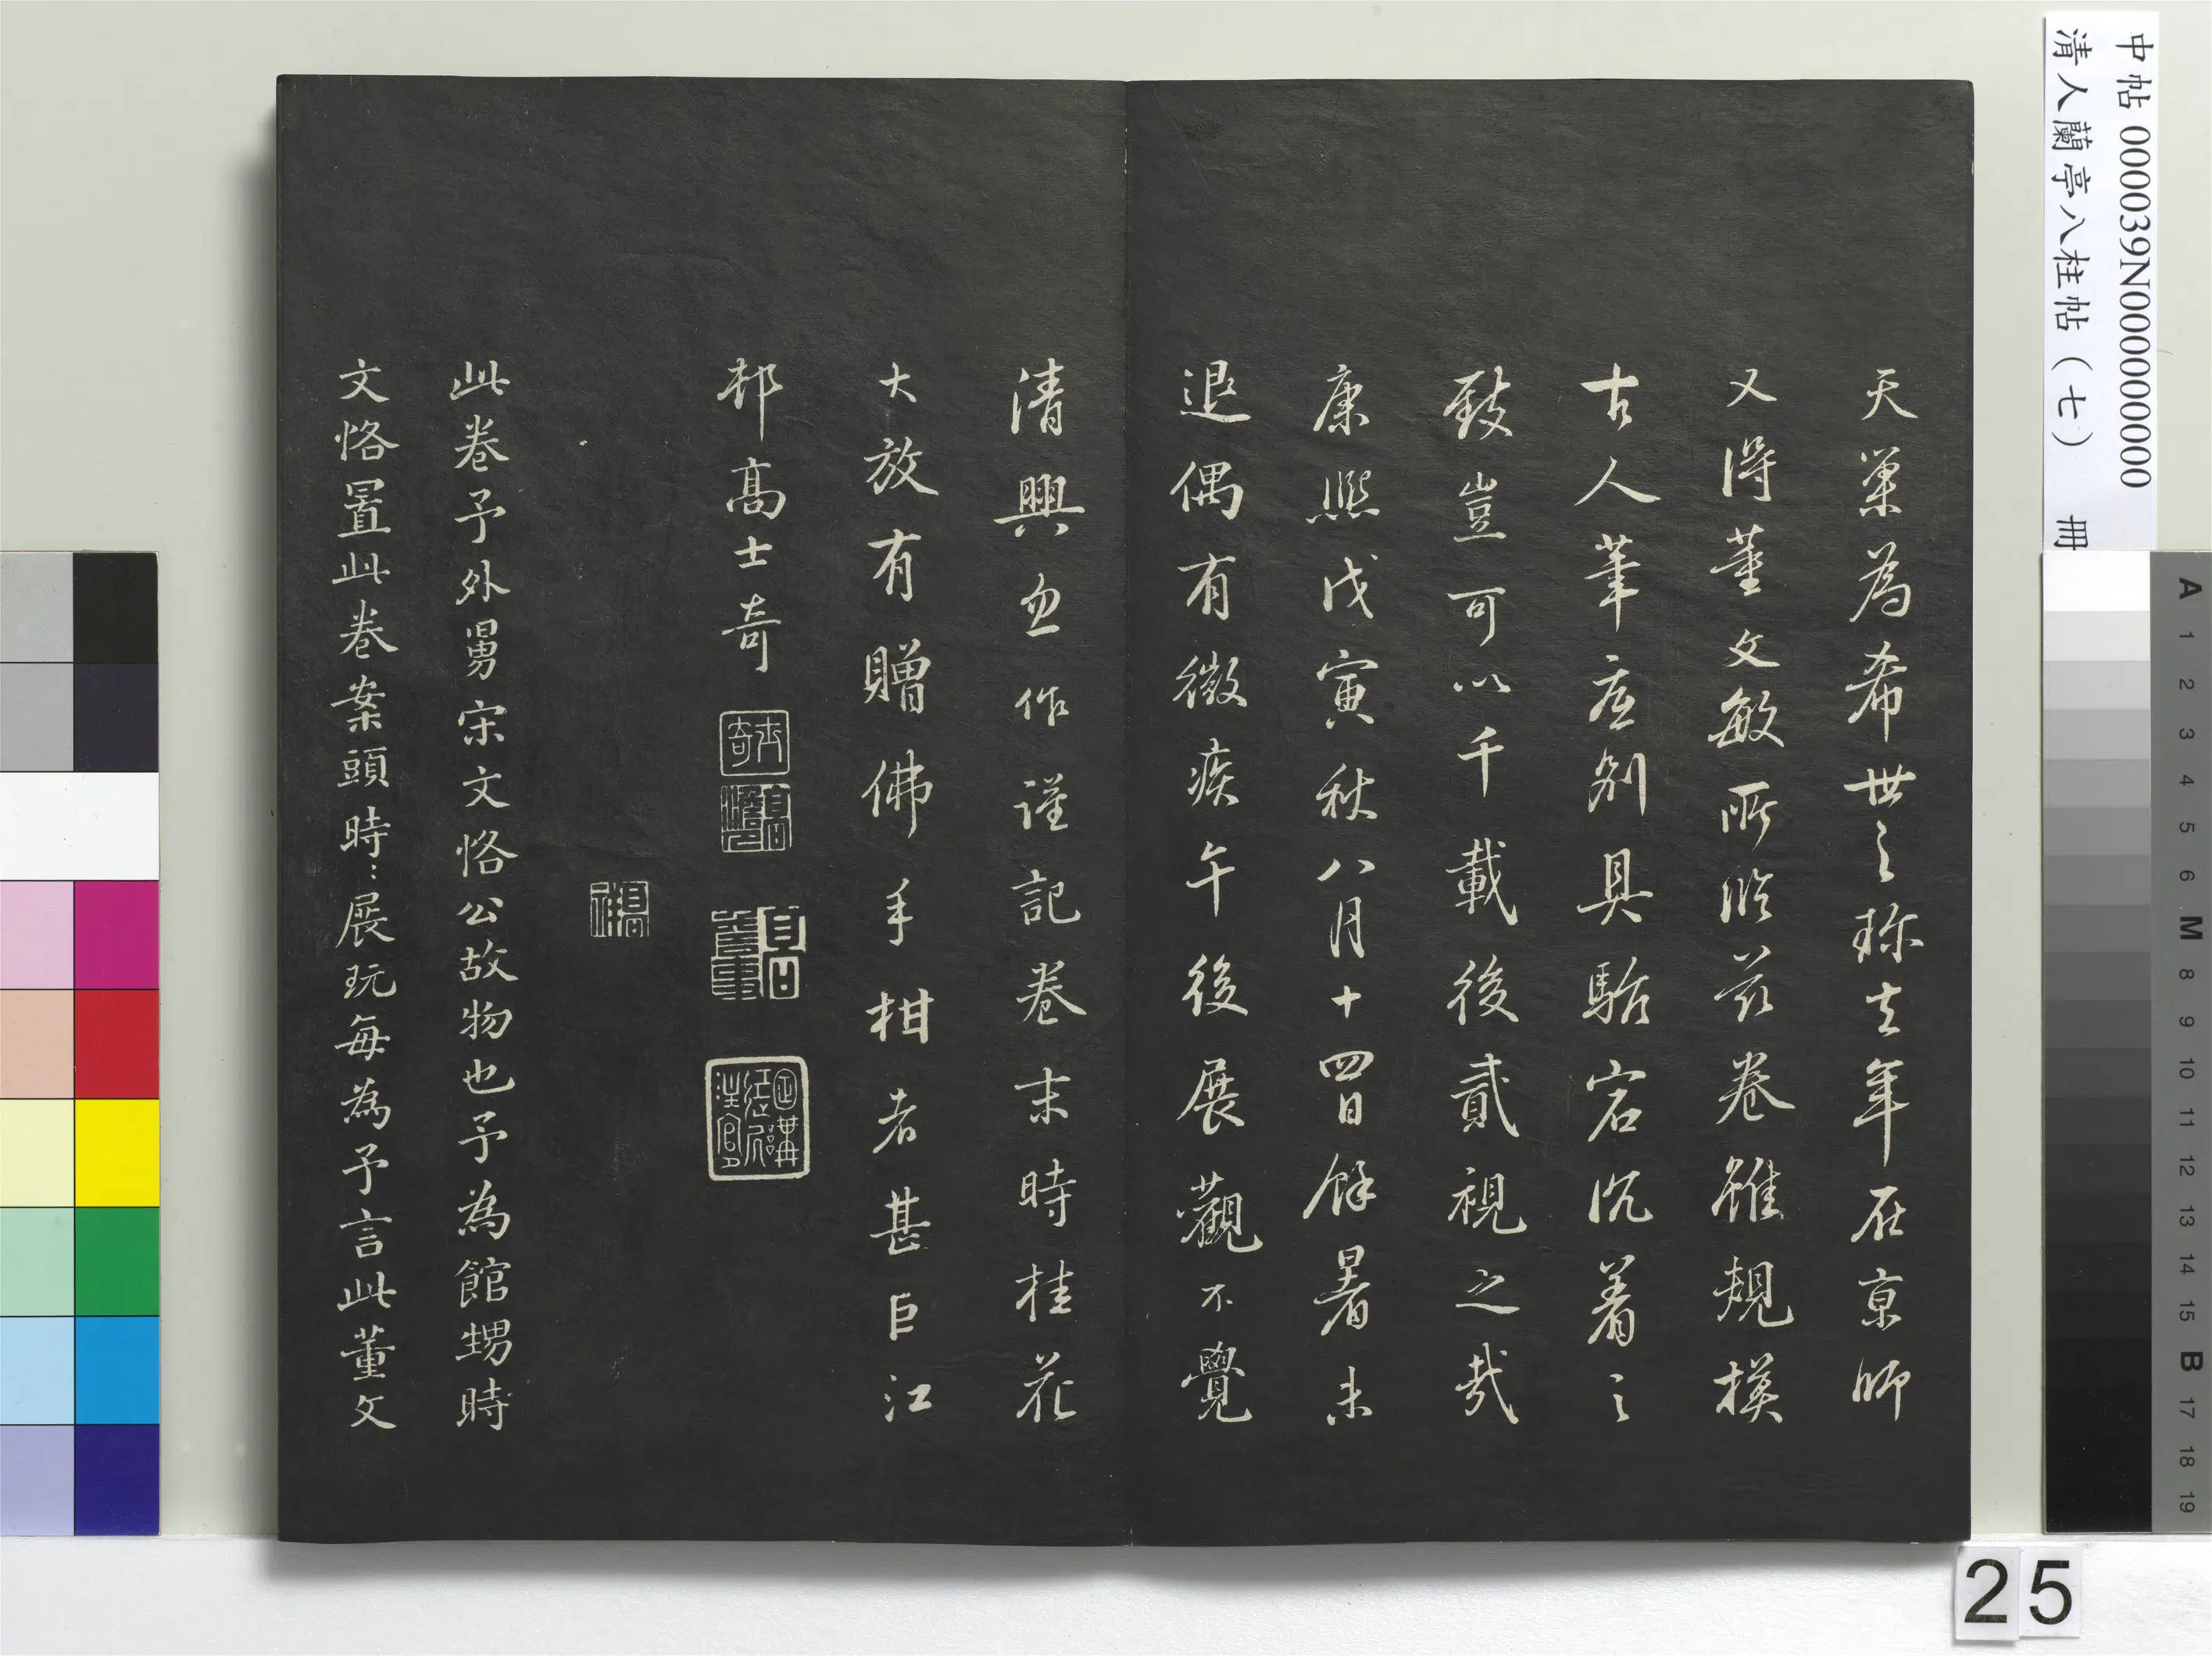 天藁為希世之珎去年在京師
又得董文敏所臨茲卷雖規撫
古人筆意別具駘宕沉着之
致豈可以千載後貳視之哉
康熙戊寅秋八月十四日餘暑未
退偶有微疾午後展觀不覺
清興忽作謹記卷末時桂花
大放有贈佛手柑者甚巨江
邨高士奇
士奇
此卷予外舅宋文恪公故物也予為館甥時
文恪置此卷案頭時:展玩每為予言此董文
中帖 000039N000000000
清人蘭亭八柱帖(七) 冊
A 1 2 3 4 5 6 M 8 9 10 11 12 13 14 15 B 17 18 19
25